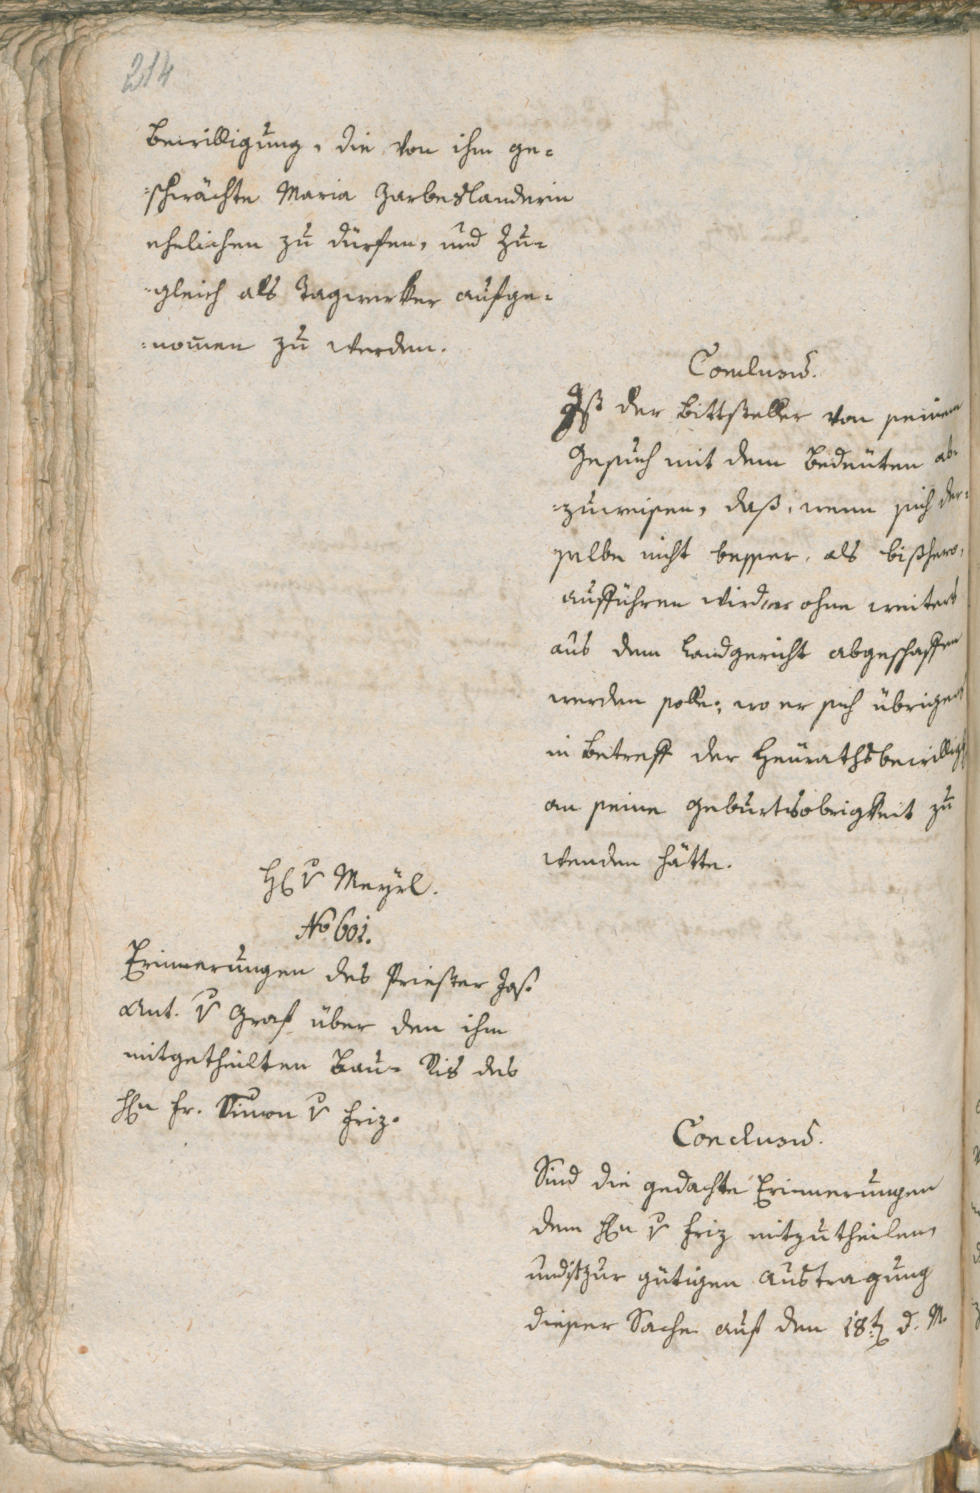 214
Bewilligung, die von ihm ge-
-schwächte Maria Zarbeslanderin
ehelichen zu dürfen, und zu-
-gleich als Tagwerker aufge-
-nom̅en zu werden.
Conclusum.
Ist der Bittsteller von seinem
Gesuch mit dem Bedeuten ab-
-zuweisen, daß, wenn sich der-
selbe nicht besser, als bißhero,
aufführen wird, er ohne weiters
aus dem Landgericht abgeschaffen
werden solle; wo er sich übrigens
in Betreff der Heurathsbewillig
an seine Geburtsobrigkeit zu
wenden hätte.
H v Meyrl.
No 601.
Erinnerungen des Priester Jos.
Ant. v Graf über den ihm
mitgetheilten Bau-Ris des
Hn Fr. Simon v Friz.
Conclusum.
Sind die gedachte Erinnerungen
dem Hn v Friz mitzutheilen,
und ist zur gütigen Austragung
dieser Sache auf den 18t d. M.